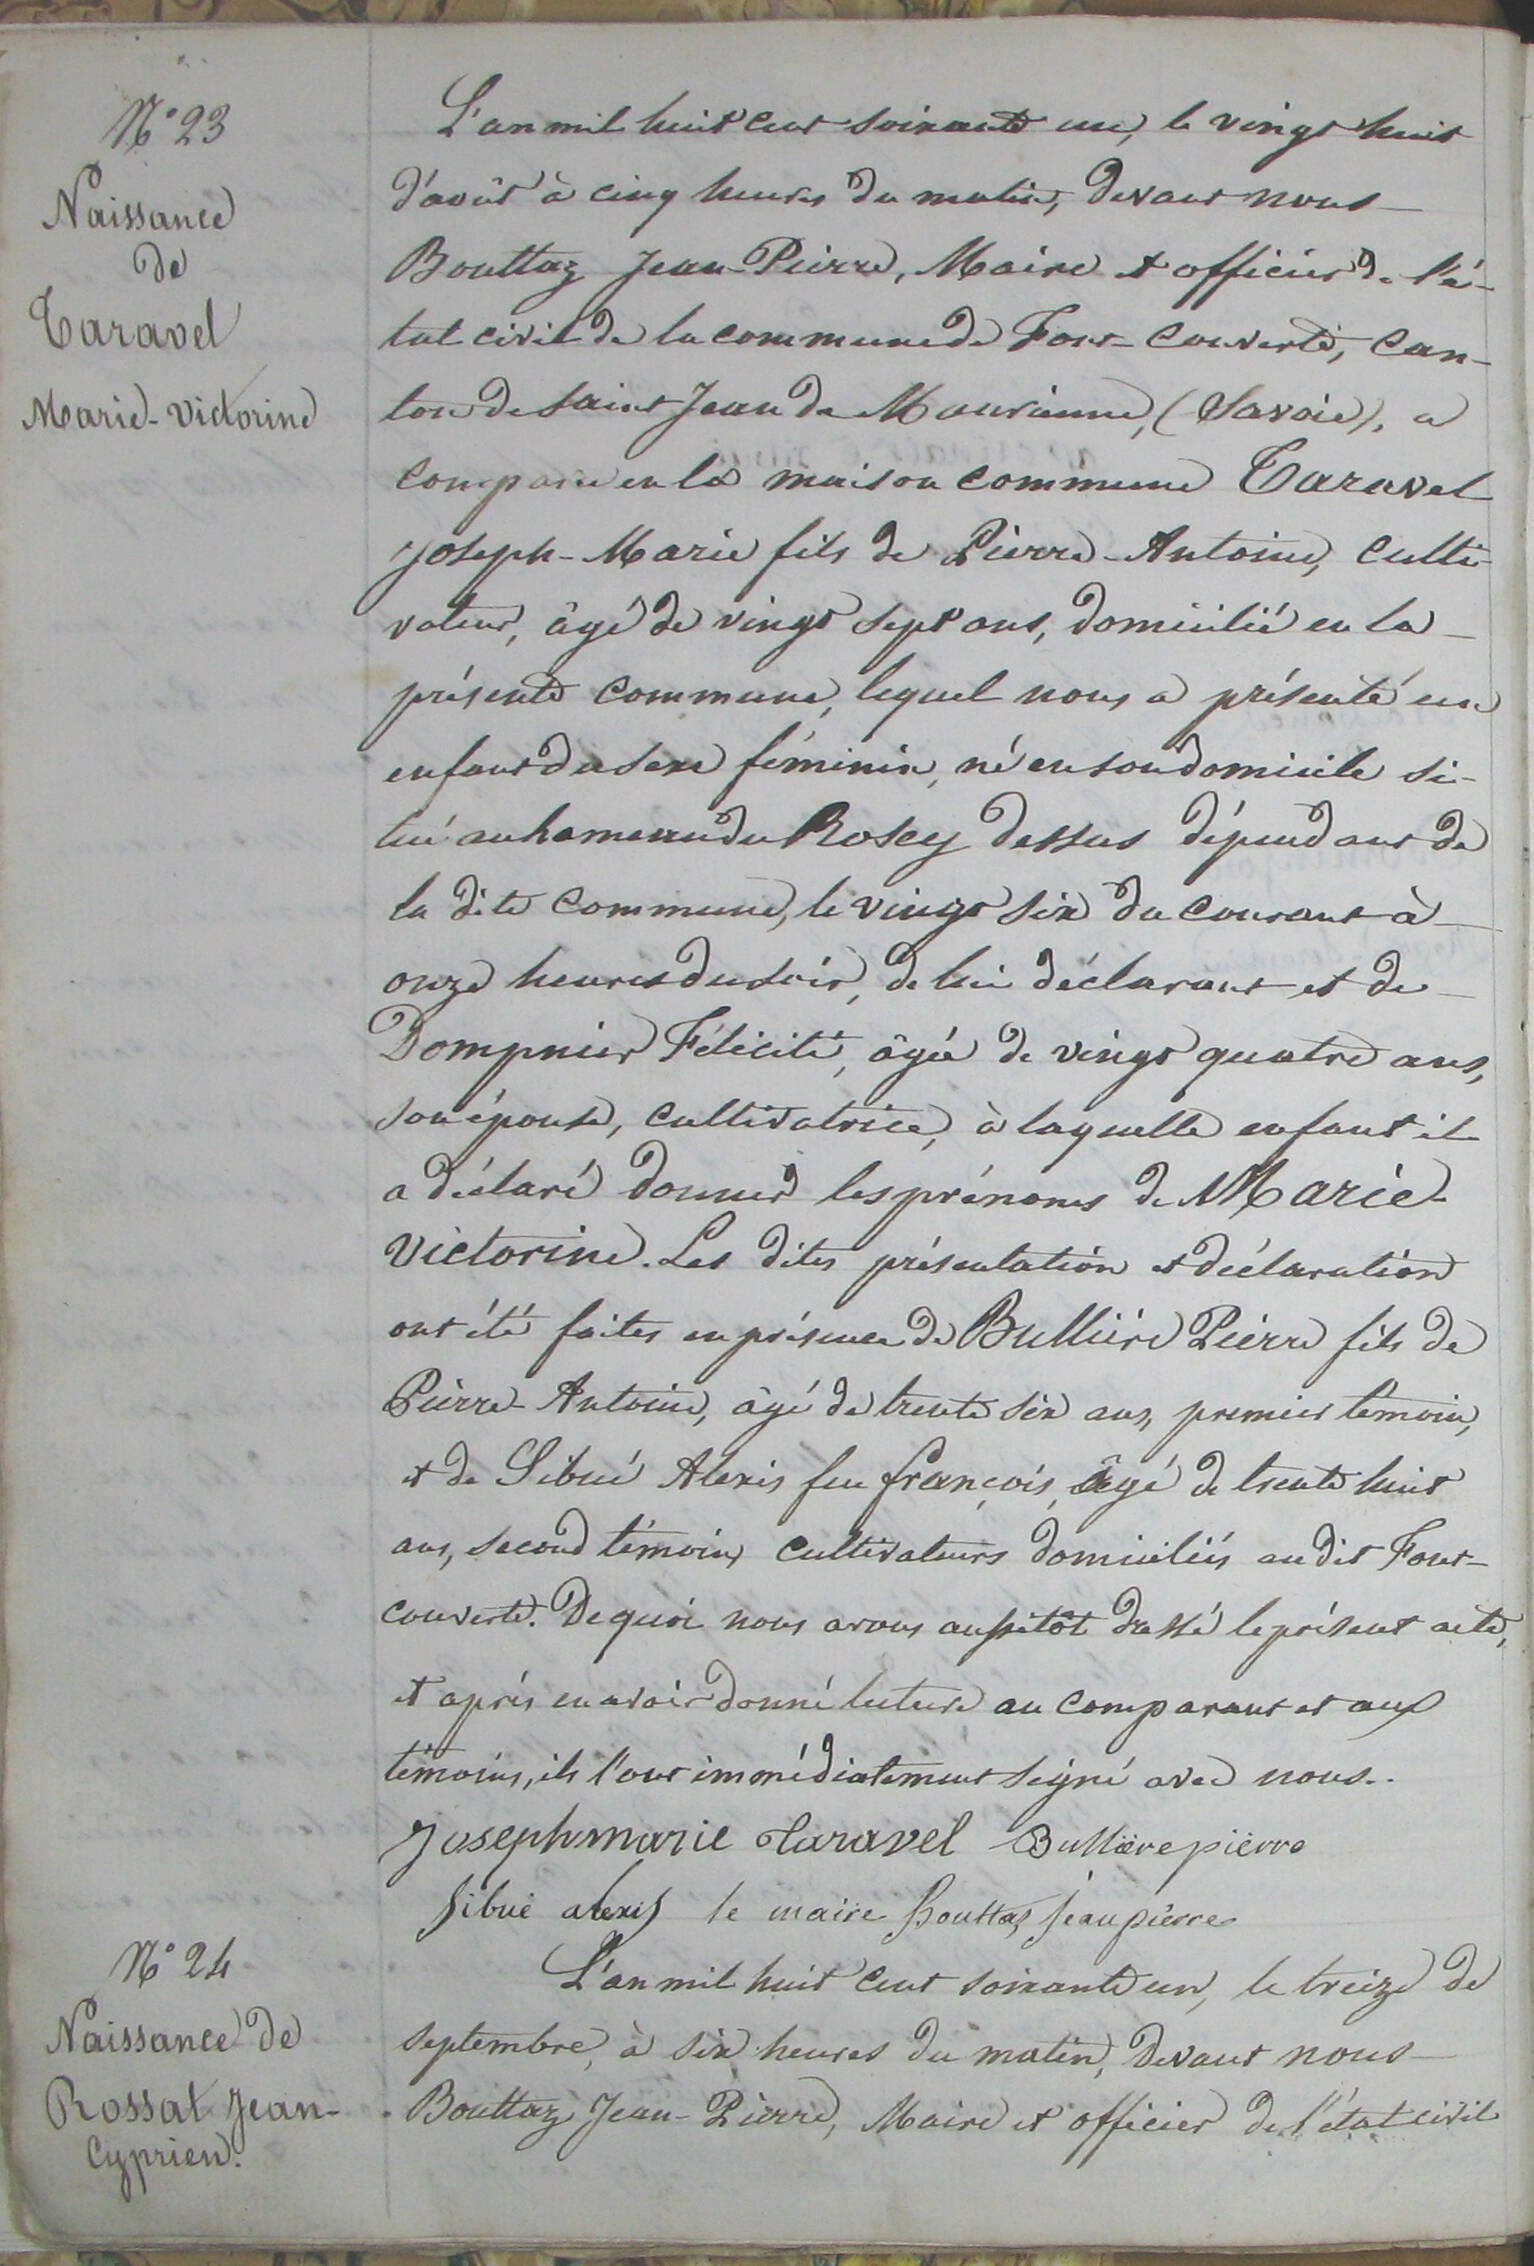 N° 23
Naissance
de
Taravel
Marie-Victorine
L'an mil huit cent soixante un, le vingt huit
d'août à cinq heures du matin, devant nous
Bouttaz Jean-Pierre, Maire et officier de l'é-
tat civil de la commune de Four-couverte, can-
ton de Saint Jean de Maurienne, (Savoie), a
comparu en la maison commune Taravel
Joseph-Marie fils de Pierre-Antoine, culti-
vateur, âgé de vingt sept ans, domicilié en la
présente commune, lequel nous a présenté un
enfant du sexe féminin, né en son domicile si-
tué au hameau du Rosey dessus dépendant de
la dite commune, le vingt six du courant à
onze heures du soir, de lui déclarant et de
Dompnier Félicité, âgée de vingt quatre ans,
son épouse, cultivatrice, à laquelle enfant il
a déclaré donner les prénoms de Marie-
Victorine. Les dites présentation et déclaration
ont été faites en présence de Bullière Pierre fils de
Pierre-Antoine, âgé de trente six ans, premier témoin,
et de Sibué Alexis feu françois, âgé de trente huit
ans, second témoin, cultivateurs domiciliés au dit Four-
couverte. De quoi nous avons aussitôt dressé le présent acte,
et après en avoir donné lecture au comparant et aux
témoins, ils l'ont immédiatement signé avec nous..
Joseph marie Taravel Bullière pierre
Sibué alexis le maire Bouttaz jean pierre
N° 24
Naissance de
Rossat Jean-
Cyprien.
L'an mil huit cent soixante un, le treize de
septembre, à six heures du matin, devant nous
Bouttaz Jean-Pierre, Maire et officier de l'état civil